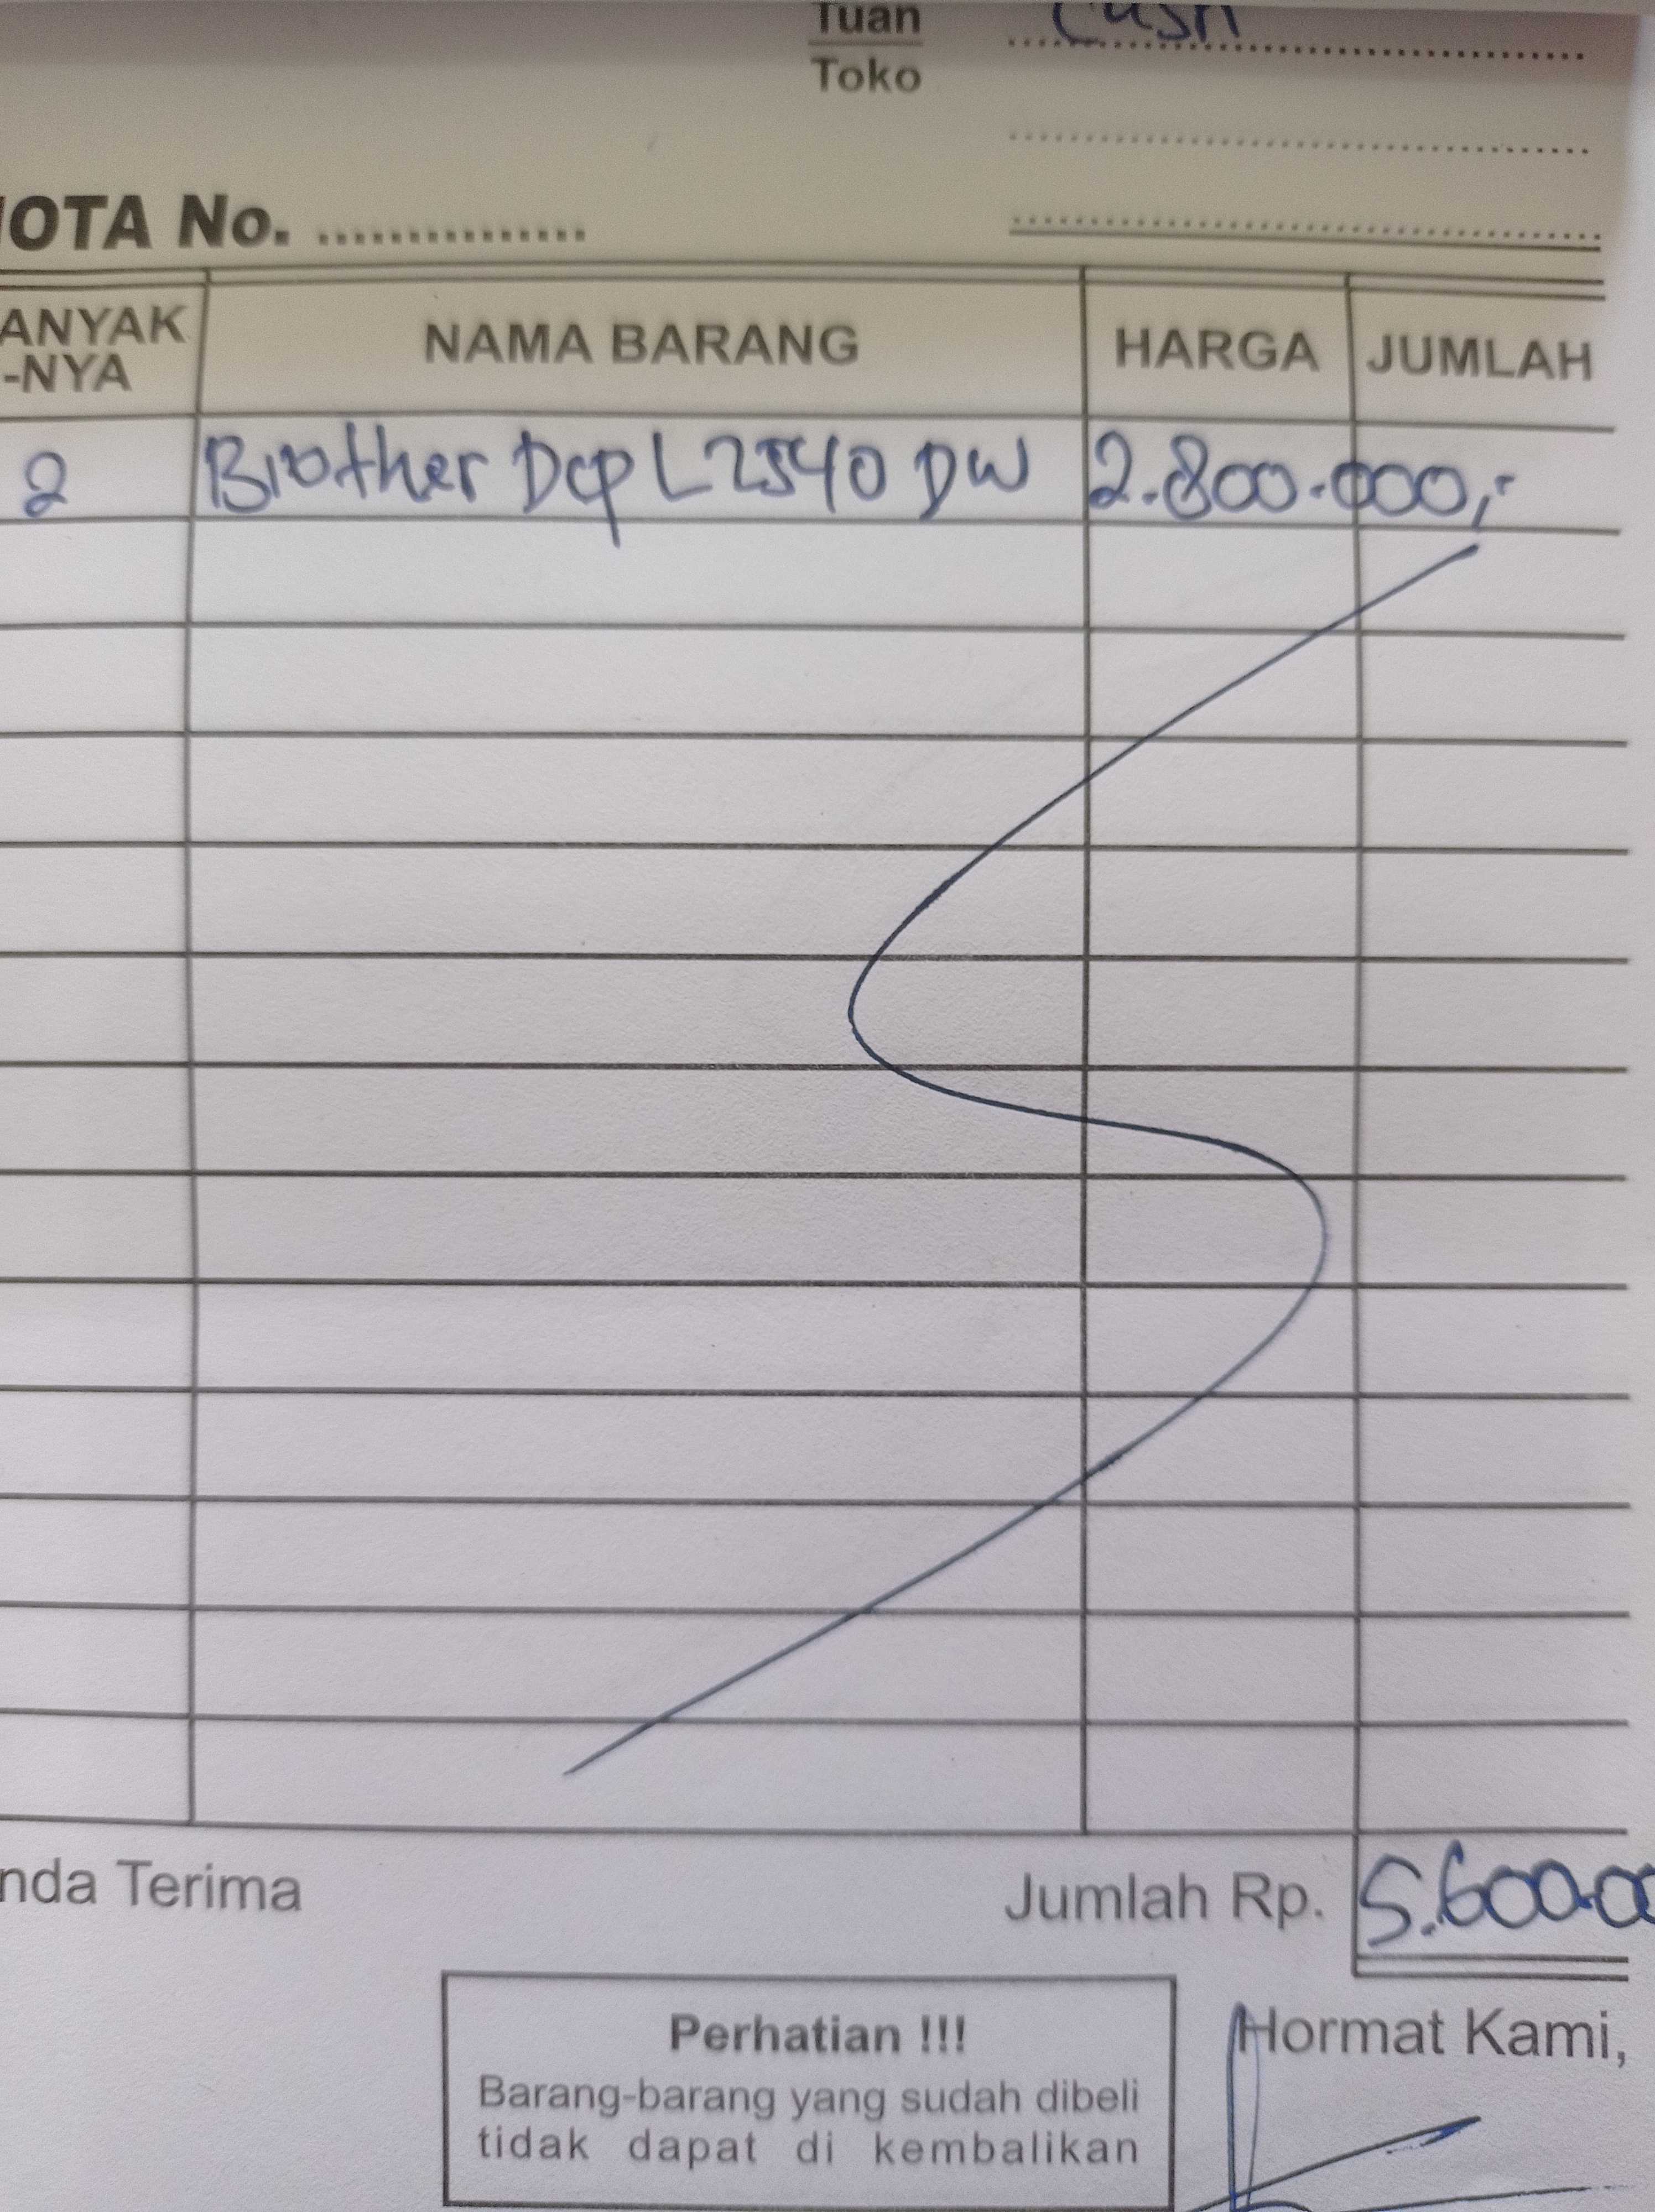 Tuan Cash
Toko
NOTA No. ...............
BANYAK -NYA NAMA BARANG HARGA JUMLAH
2 Brother Dcp L2540 DW 2.800.000,-
nda Terima Jumlah Rp. 5.600.00
Perhatian !!! Hormat Kami,
Barang-barang yang sudah dibeli
tidak dapat di kembalikan